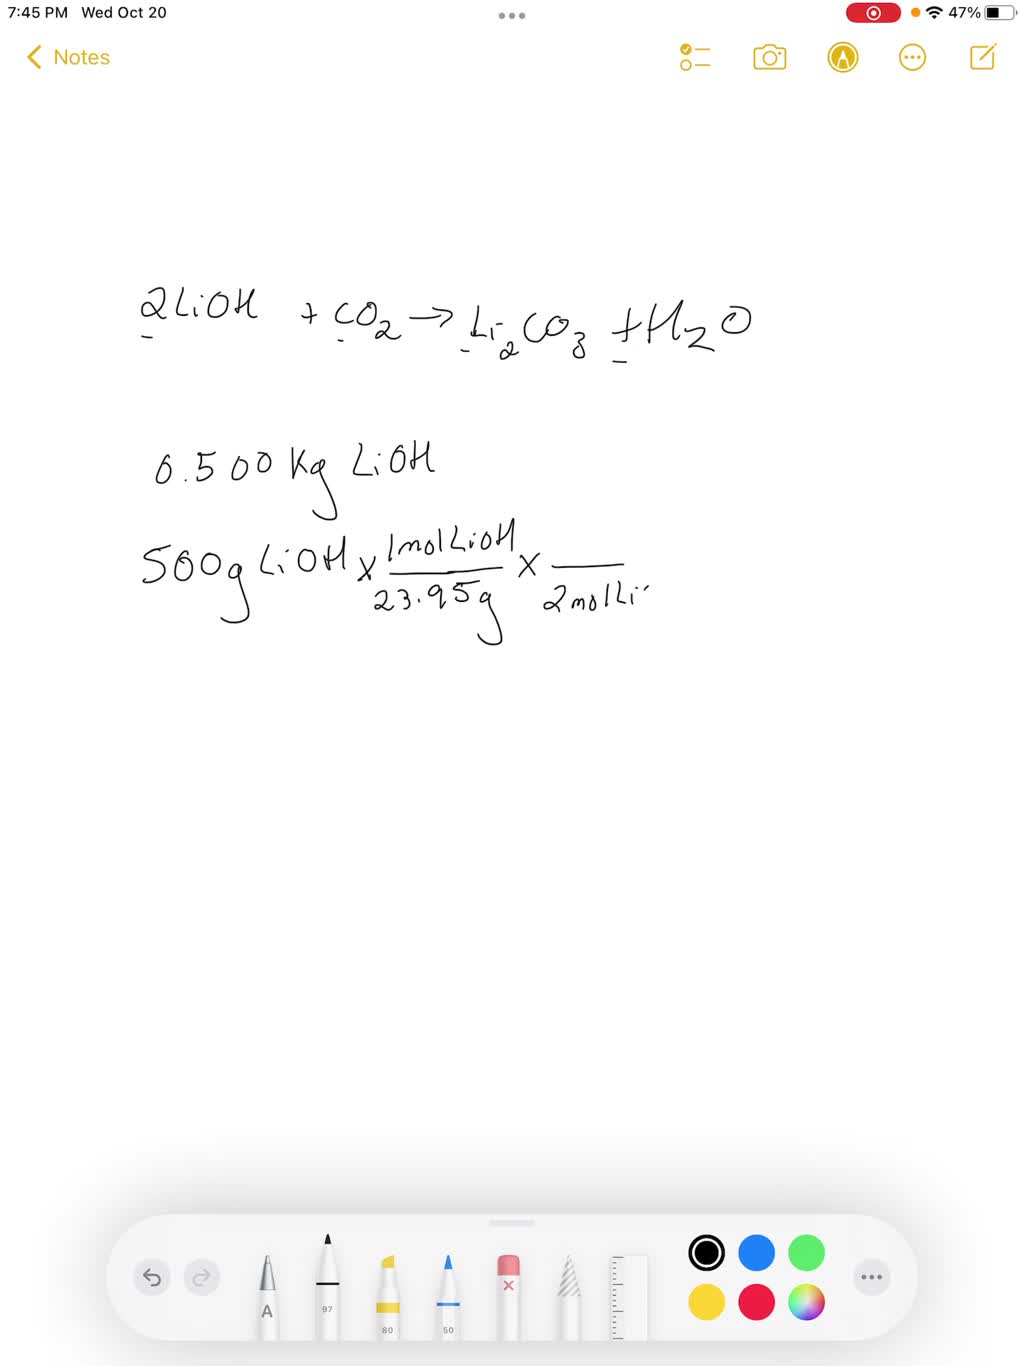 7:45 PM Wed Oct 20
47%
Notes
2LiOH + CO2 → Li2CO3 + H2O
0.500 kg LiOH
500g LiOH x 1molLiOH x
23.95g 2molLi
A
97
80
50